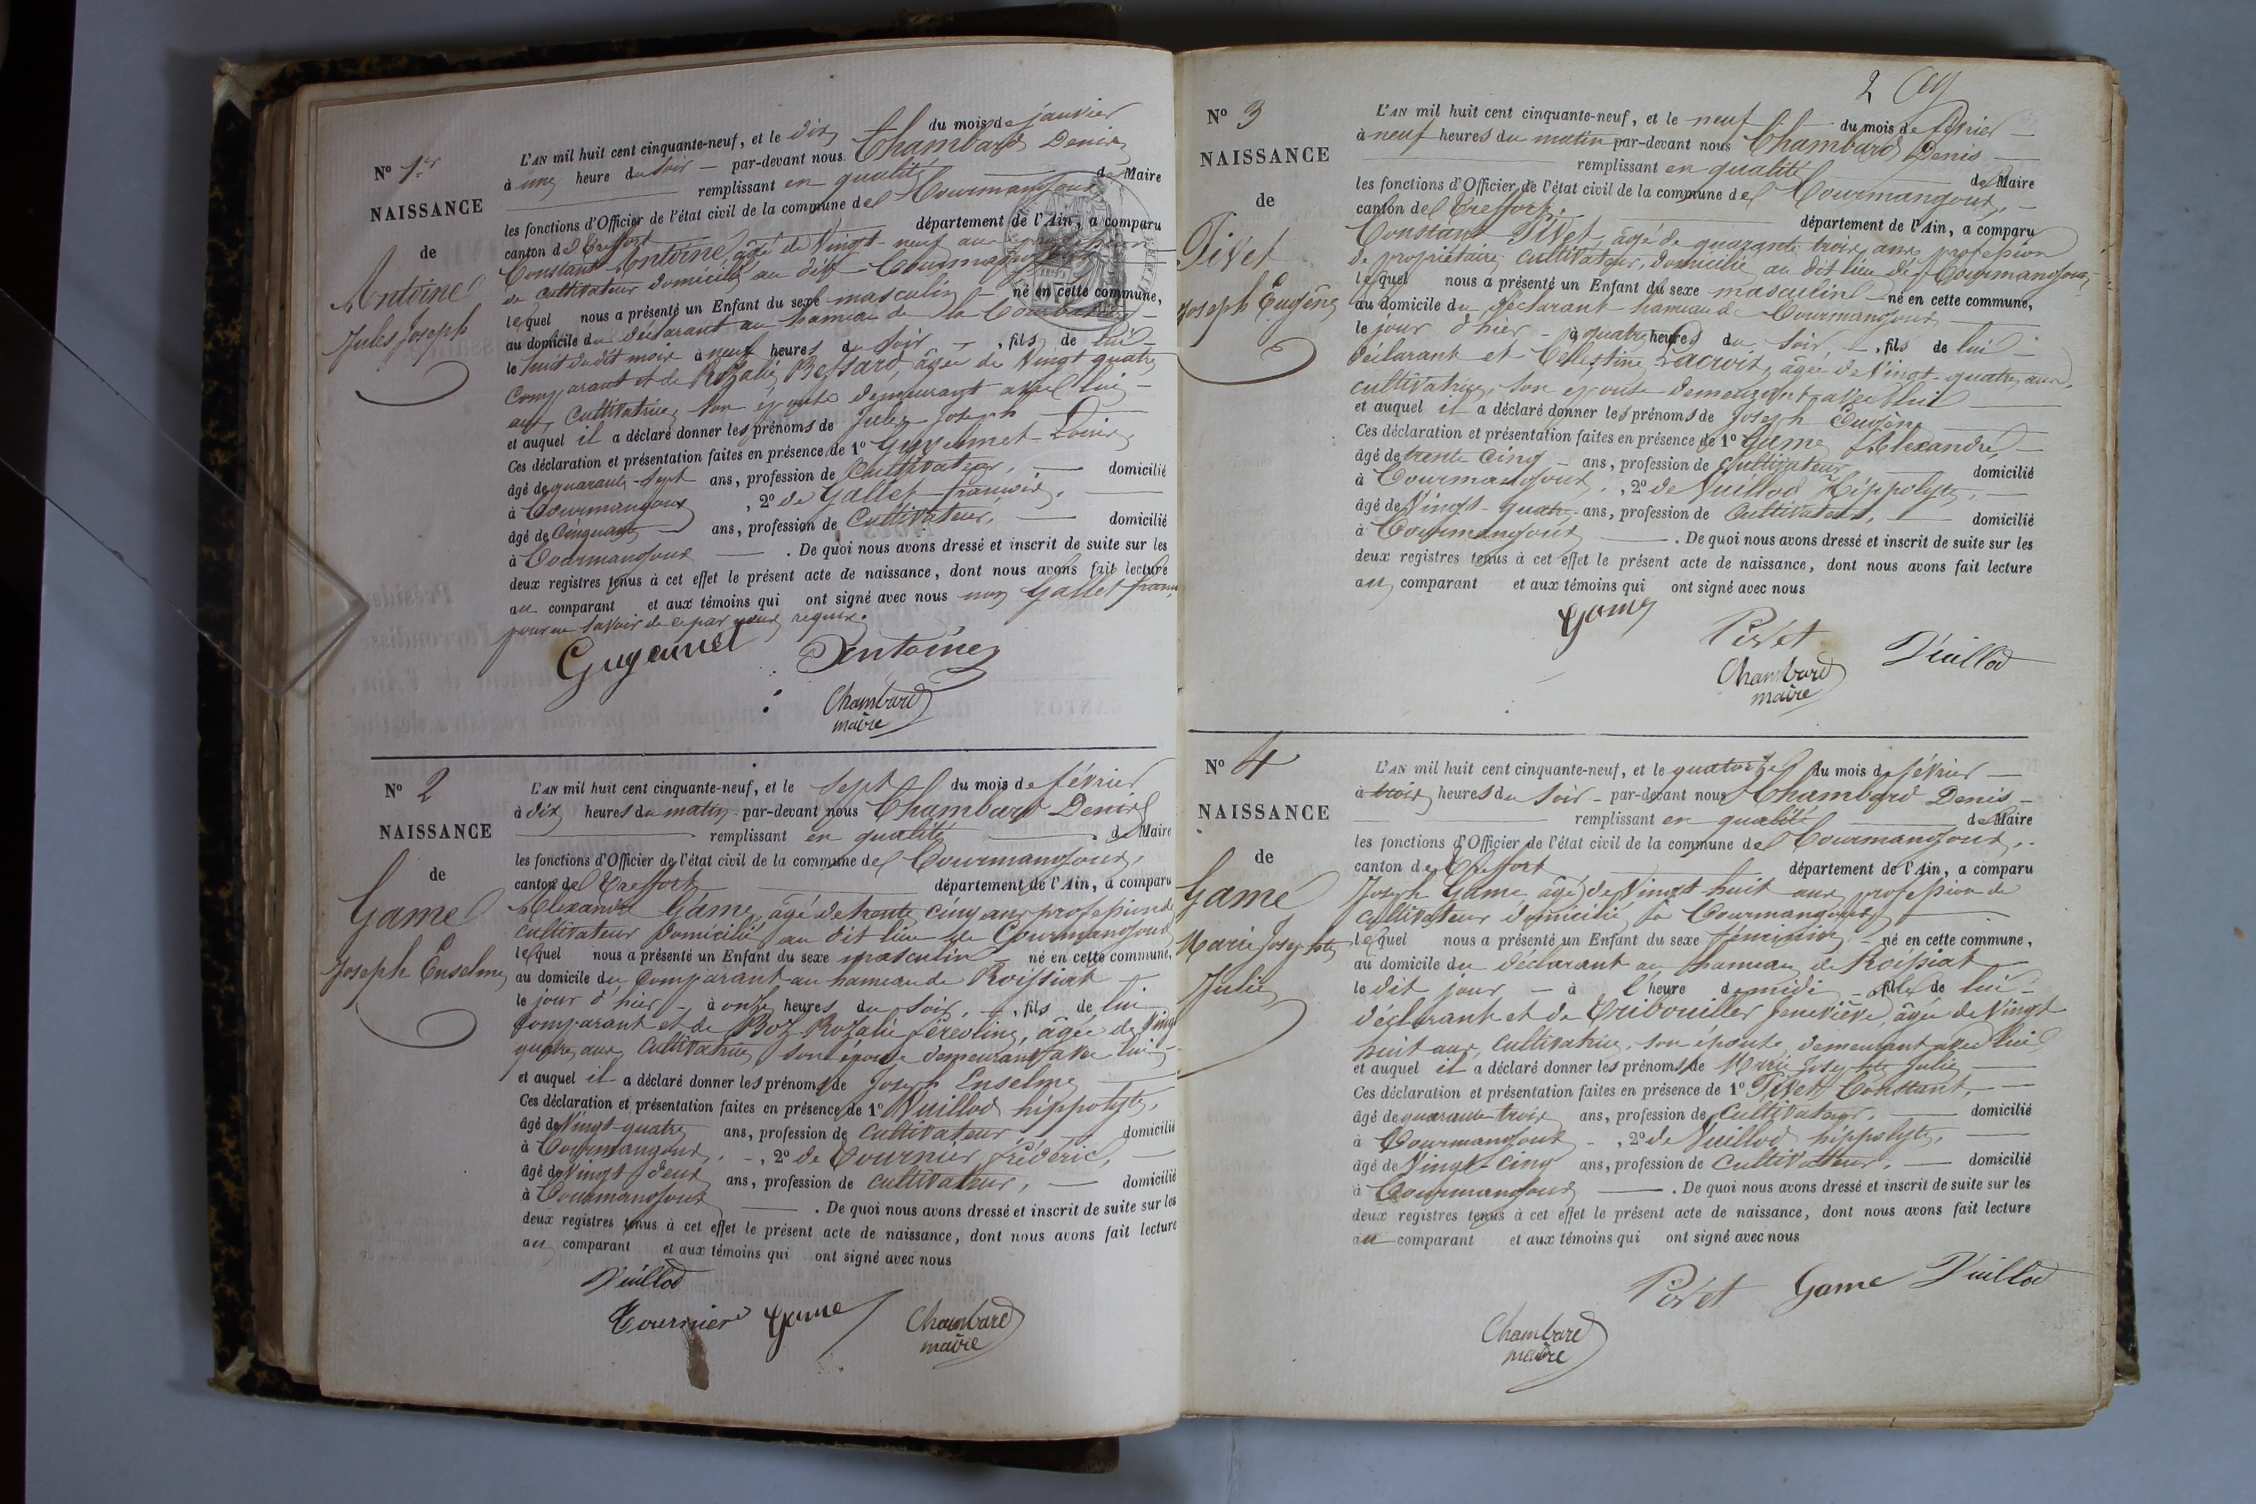 N° 1er
NAISSANCE
de
Antoine
Jules Joseph
L'AN mil huit cent cinquante-neuf, et le dix du mois de janvier
à une heure du soir — par-devant nous Chambard Denis
remplissant en qualité de Maire
les fonctions d'Officier de l'état civil de la commune de Courmangoux
canton de Treffort département de l'Ain, a comparu
Constant Antoine, âgé de Vingt-neuf ans profession
de cultivateur domicilié au dit Courmangoux
lequel nous a présenté un Enfant du sexe masculin — né en cette commune,
au domicile du déclarant au hameau de la
le huit du dit mois à neuf heures du soir —, fils de lui —
comparant et de Rozalie Bessard, âgée de Vingt quatre
ans, cultivatrice, son épouse demeurant avec lui —
et auquel il a déclaré donner les prénoms de Jules Joseph
Ces déclaration et présentation faites en présence de 1° Guyelmet Louis
âgé de quarante-sept ans, profession de Cultivateur, — domicilié
à Courmangoux , 2° de Gallet françois, —
âgé de Cinquante ans, profession de Cultivateur, — domicilié
à Courmangoux — . De quoi nous avons dressé et inscrit de suite sur les
deux registres tenus à cet effet le présent acte de naissance, dont nous avons fait lecture
au comparant et aux témoins qui ont signé avec nous non Gallet
pour ne savoir de ce par nous requis.
Antoine
Chambard
maire
N° 2
NAISSANCE
de
Game
Joseph Enselme
L'AN mil huit cent cinquante-neuf, et le sept du mois de février
à dix heures du matin par-devant nous Chambard Denis
remplissant en qualité de Maire
les fonctions d'Officier de l'état civil de la commune de Courmangoux,
canton de Treffort département de l'Ain, a comparu
Alexandre Game, âgé de trente cinq ans profession de
cultivateur domicilié au dit lieu de Courmangoux
lequel nous a présenté un Enfant du sexe masculin — né en cette commune,
au domicile du comparant au hameau de Roissiat —
le jour d'hier — à onze heures du soir, —, fils de lui
comparant et de Boz Rozalie féreoline, âgée de Vingt
quatre ans, cultivatrice son épouse demeurant avec lui —
et auquel il a déclaré donner les prénoms de Joseph Enselme —
Ces déclaration et présentation faites en présence de 1° Vuillod hippolyte,
âgé de Vingt-quatre ans, profession de cultivateur domicilié
à Courmangoux, —, 2° de Tournier frédéric, —
âgé de Vingt deux ans, profession de cultivateur, — domicilié
à Courmangoux — . De quoi nous avons dressé et inscrit de suite sur les
deux registres tenus à cet effet le présent acte de naissance, dont nous avons fait lecture
au comparant et aux témoins qui ont signé avec nous
Vuillod
Tournier Game Chambard
maire
2
N° 3
NAISSANCE
de
Pivet
Joseph Eugène
L'AN mil huit cent cinquante-neuf, et le neuf du mois de février —
à neuf heures du matin par-devant nous Chambard Denis —
remplissant en qualité de Maire
les fonctions d'Officier de l'état civil de la commune de Courmangoux, —
canton de Treffort, département de l'Ain, a comparu
Constant Pivet, âgé de quarante trois ans profession
de propriétaire cultivateur, domicilié au dit lieu de Courmangoux,
lequel nous a présenté un Enfant du sexe masculin — né en cette commune,
au domicile du déclarant hameau de Courmangoux
le jour d'hier — à quatre heures du soir, —, fils de lui —
déclarant et Celestine Lacroix, âgée de Vingt-quatre ans,
cultivatrice, son épouse demeurant avec lui —
et auquel il a déclaré donner les prénoms de Joseph Eugène
Ces déclaration et présentation faites en présence de 1° Game Alexandre —
âgé de trente cinq — ans, profession de Cultivateur domicilié
à Courmangoux, , 2° de Vuillod Hippolyte, —
âgé de Vingt-quatre ans, profession de Cultivateur, — domicilié
à Courmangoux — . De quoi nous avons dressé et inscrit de suite sur les
deux registres tenus à cet effet le présent acte de naissance, dont nous avons fait lecture
au comparant et aux témoins qui ont signé avec nous
Game
Pivet Vuillod
Chambard
maire
N° 4
NAISSANCE
de
Game
Marie Josephte
Julie
L'AN mil huit cent cinquante-neuf, et le quatorze du mois de février —
à trois heures du soir — par-devant nous Chambard Denis —
remplissant en qualité de Maire
les fonctions d'Officier de l'état civil de la commune de Courmangoux,
canton de Treffort département de l'Ain, a comparu
Joseph Game âgé de Vingt huit ans profession de
cultivateur domicilié à Courmangoux
lequel nous a présenté un Enfant du sexe féminin — né en cette commune,
au domicile du déclarant au hameau de Roissiat —
le dit jour — à l'heure de midi — fille de lui —
déclarant et de Tribouiller Jeneviève, âgée de Vingt
huit ans, cultivatrice, son épouse demeurant avec lui
et auquel il a déclaré donner les prénoms de Marie Josephte Julie —
Ces déclaration et présentation faites en présence de 1° Pivet Constant, —
âgé de quarante trois ans, profession de Cultivateur, — domicilié
à Courmangoux — , 2° de Vuillod hippolyte, —
âgé de Vingt-cinq ans, profession de Cultivateur, — domicilié
à Courmangoux — . De quoi nous avons dressé et inscrit de suite sur les
deux registres tenus à cet effet le présent acte de naissance, dont nous avons fait lecture
au comparant et aux témoins qui ont signé avec nous
Pivet Game Vuillod
Chambard
maire